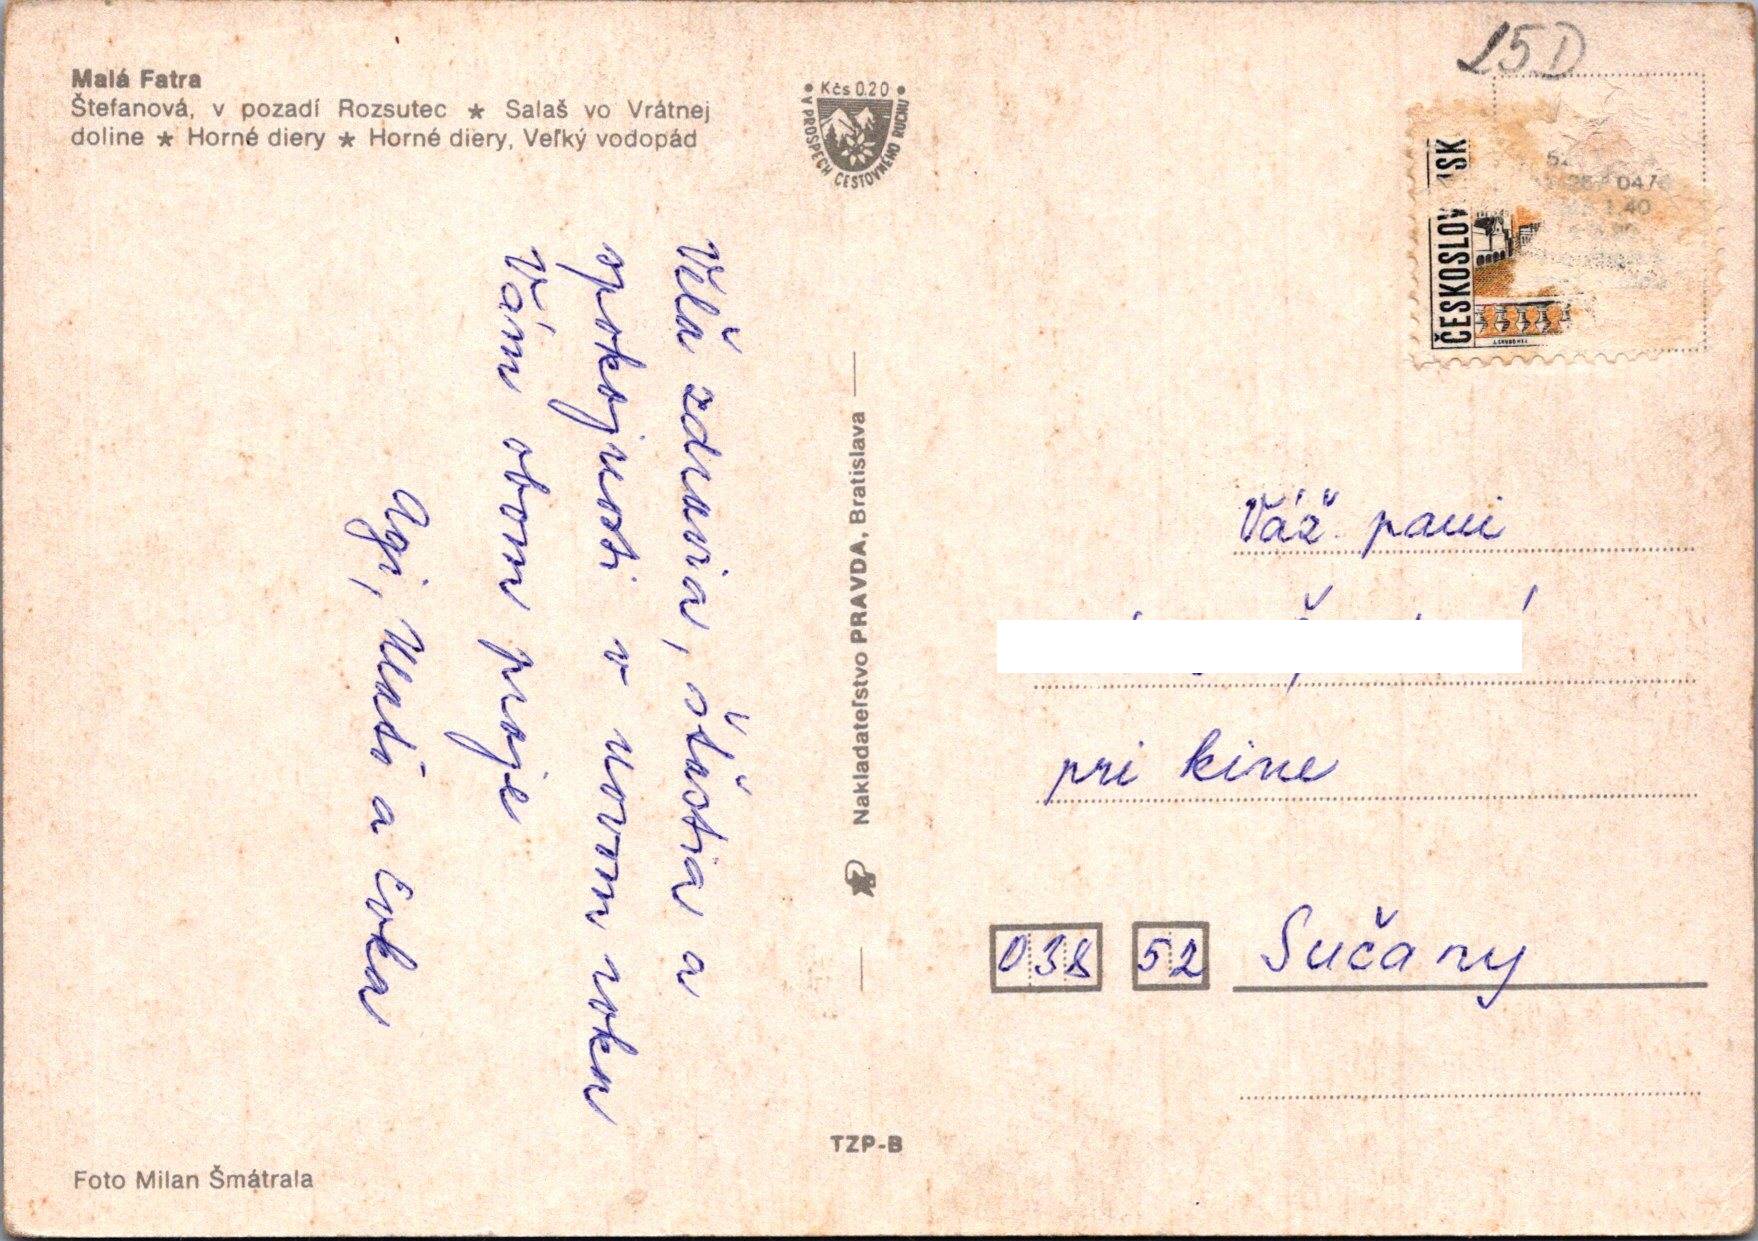 Malá Fatra
Štefanová, v pozadí Rozsutec ★ Salaš vo Vrátnej
doline ★ Horné diery ★ Horné diery, Veľký vodopád
Kčs 0.20
V PROSPECH CESTOVNÉHO RUCHU
15D
ČESKOSLOV NSK
0476
1,40
Veľa zdravia, šťastia a
spokojnosti v novom roku
Vám obom praje
Agi, Vlasť a Evka
Nakladateľstvo PRAVDA, Bratislava
Váž. pani
pri kine
038 52 Sučany
TZP-B
Foto Milan Šmátrala